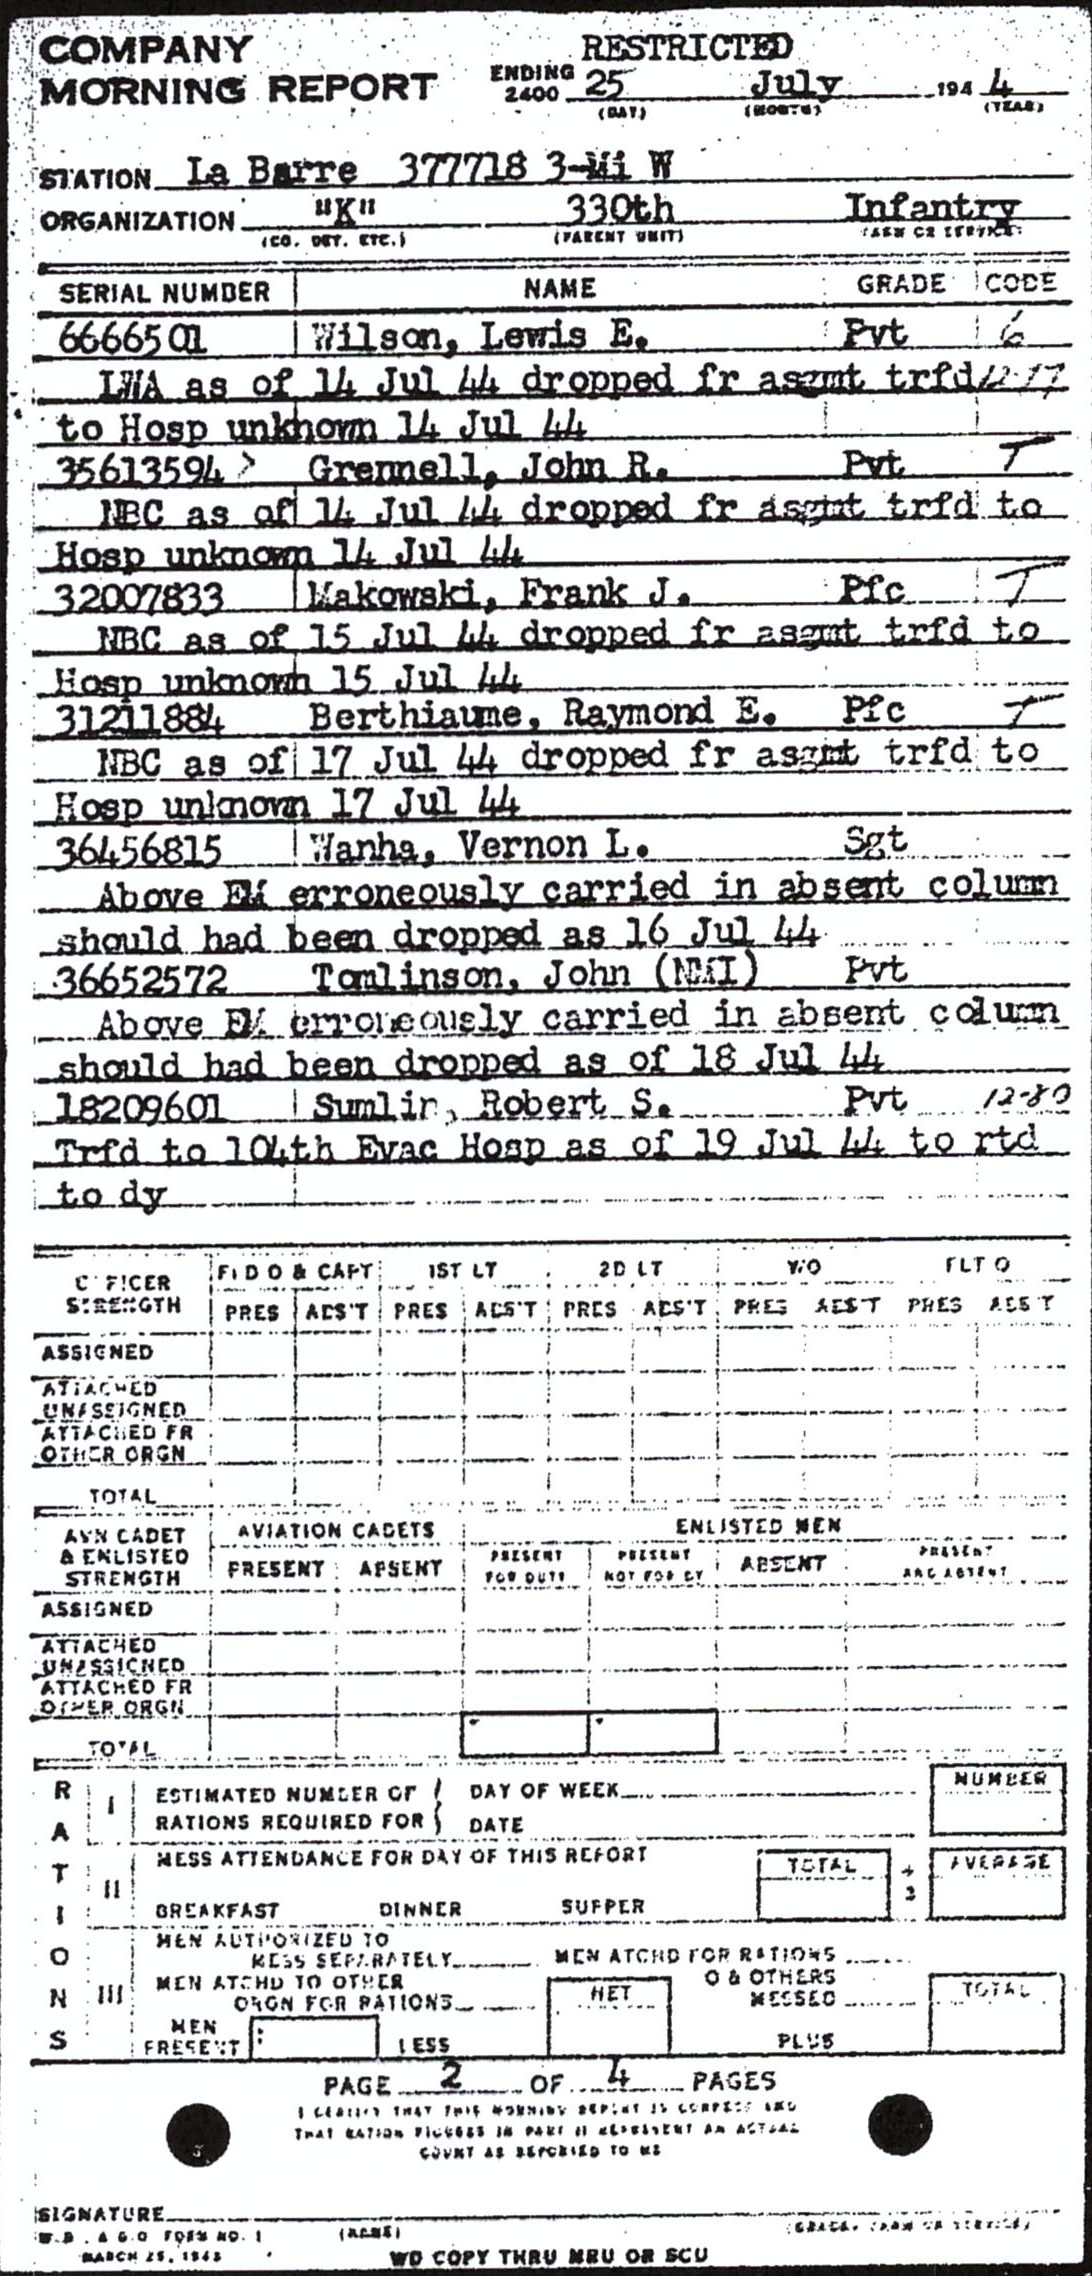 COMPANY RESTRICTED
MORNING REPORT ENDING 2400 25 July 1944
(DAY) (MONTH) (YEAR)
STATION La Barre 377718 3-Mi W
ORGANIZATION "K" 330th Infantry
(CO. DET. ETC.) (PARENT UNIT) (ARM OR SERVICE)
SERIAL NUMBER NAME GRADE CODE
6666501 Wilson, Lewis E. Pvt 6
LWA as of 14 Jul 44 dropped fr asgmt trfd 12-17
to Hosp unknown 14 Jul 44
35613594 > Grennell, John R. Pvt T
NBC as of 14 Jul 44 dropped fr asgmt trfd to
Hosp unknown 14 Jul 44
32007833 Makowski, Frank J. Pfc T
NBC as of 15 Jul 44 dropped fr asgmt trfd to
Hosp unknown 15 Jul 44
31211884 Berthiaume, Raymond E. Pfc T
NBC as of 17 Jul 44 dropped fr asgmt trfd to
Hosp unknown 17 Jul 44
36456815 Wanha, Vernon L. Sgt
Above EM erroneously carried in absent column
should had been dropped as 16 Jul 44
36652572 Tomlinson, John (NMI) Pvt
Above EM erroneously carried in absent column
should had been dropped as of 18 Jul 44
18209601 Sumlin, Robert S. Pvt 12-80
Trfd to 104th Evac Hosp as of 19 Jul 44 to rtd
to dy
OFFICER STRENGTH FLD O & CAPT 1ST LT 2D LT WO FLT O
PRES ABS'T PRES ABS'T PRES ABS'T PRES ABS'T PRES ABS'T
ASSIGNED
ATTACHED
UNASSIGNED
ATTACHED FR
OTHER ORGN
TOTAL
AVN CADET & ENLISTED STRENGTH AVIATION CADETS ENLISTED MEN
PRESENT ABSENT PRESENT FOR DUTY PRESENT NOT FOR DY ABSENT PRESENT AND ABSENT
ASSIGNED
ATTACHED
UNASSIGNED
ATTACHED FR
OTHER ORGN
TOTAL
RATIONS
I ESTIMATED NUMBER OF DAY OF WEEK NUMBER
RATIONS REQUIRED FOR DATE
II MESS ATTENDANCE FOR DAY OF THIS REPORT TOTAL ÷ 3 AVERAGE
BREAKFAST DINNER SUPPER
III MEN AUTHORIZED TO
MESS SEPARATELY MEN ATCHD FOR RATIONS
MEN ATCHD TO OTHER NET O & OTHERS TOTAL
ORGN FOR RATIONS MESSED
MEN
PRESENT LESS PLUS
PAGE 2 OF 4 PAGES
I CERTIFY THAT THIS MORNING REPORT IS CORRECT AND
THAT RATION FIGURES IN PART II REPRESENT AN ACTUAL
COUNT AS REPORTED TO ME
SIGNATURE
W.D. A G.O FORM NO. 1 (NAME) (GRADE, ARM OR SERVICE)
MARCH 25, 1943 WD COPY THRU MRU OR SCU